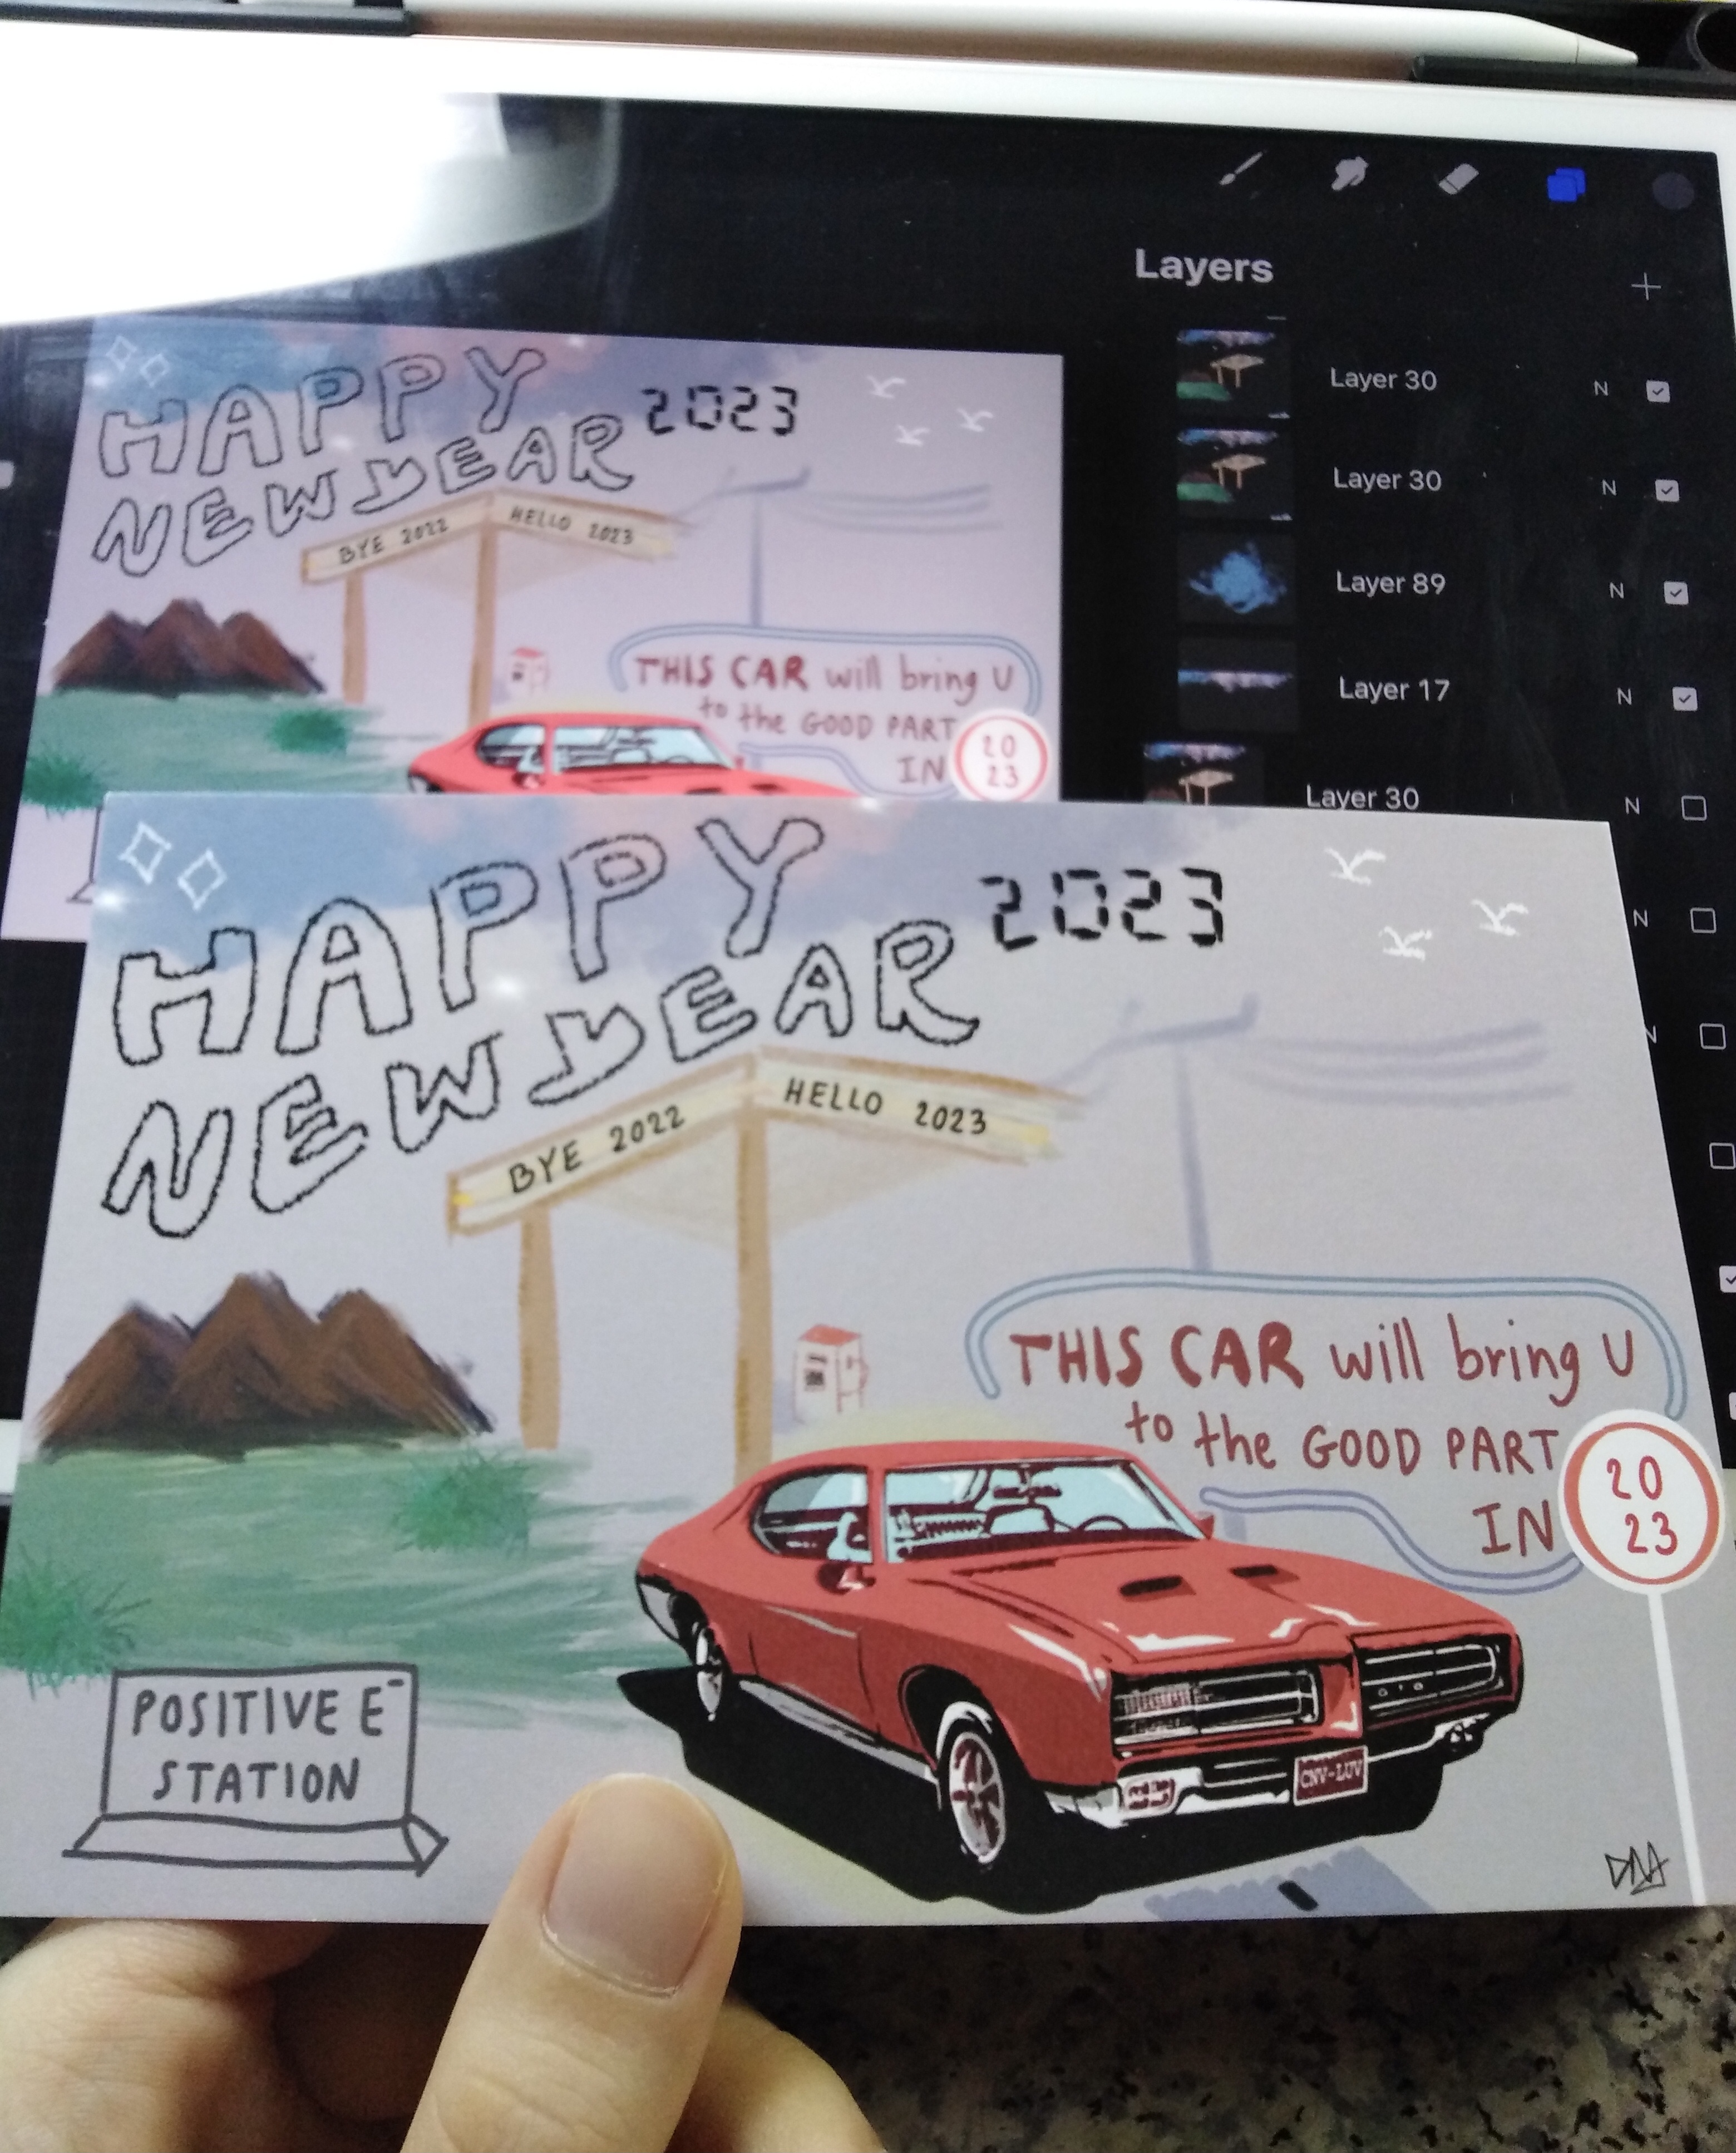 Layers
Layer 30 N
Layer 30 N
Layer 89 N
Layer 17 N
Layer 30 N
N
N
HAPPY
NEW YEAR 2023
BYE 2022 HELLO 2023
THIS CAR will bring U
to the GOOD PART
IN 20
23
HAPPY
NEW YEAR 2023
BYE 2022 HELLO 2023
THIS CAR will bring U
to the GOOD PART
IN 20
23
POSITIVE E-
STATION
GTO
CNV-LUV